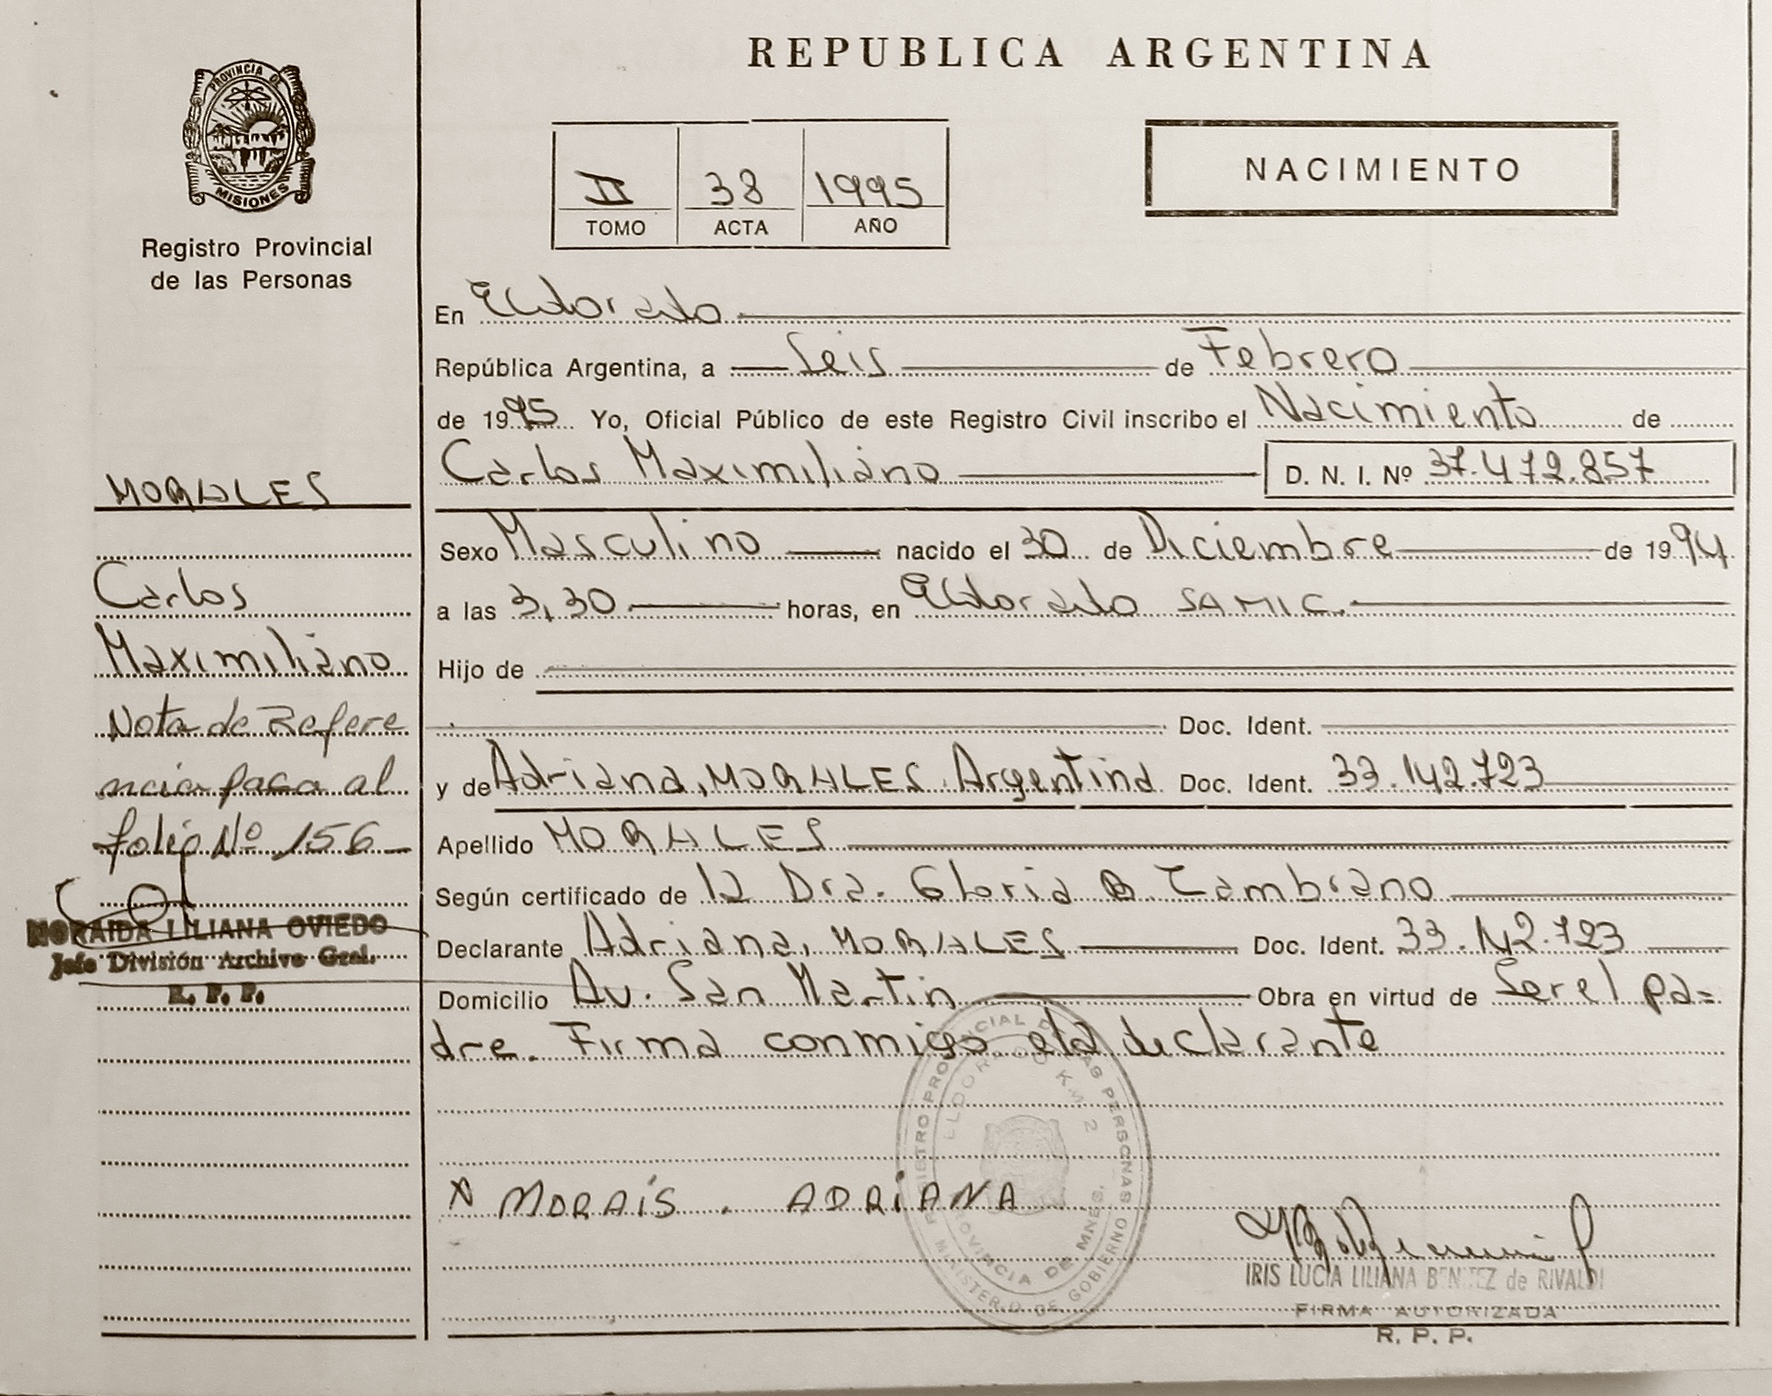 REPUBLICA ARGENTINA
PROVINCIA DE
MISIONES
Registro Provincial
de las Personas
II 38 1995
TOMO ACTA AÑO
NACIMIENTO
En Eldorado
República Argentina, a Seis de Febrero
de 1995 Yo, Oficial Público de este Registro Civil inscribo el Nacimiento de
Carlos Maximiliano D. N. I. Nº 37.472.857
Sexo Masculino nacido el 30 de Diciembre de 1994
a las 3,30 horas, en Eldorado SAMIC.
Hijo de
Doc. Ident.
y de Adriana, MORALES Argentina Doc. Ident. 33.142.723
Apellido MORALES
Según certificado de la Dra. Gloria B. Zambrano
Declarante Adriana, MORALES Doc. Ident. 33.142.723
Domicilio Av. San Martin Obra en virtud de Ser el pa=
dre. Firma conmigo el declarante
X MORAIS . ADRIANA
MORALES
Carlos
Maximiliano
Nota de Refere
ncia pasa al
folio Nº 156
NORAIDA LILIANA OVIEDO
Jefe División Archivo Gral.
R. P. P.
REGISTRO PROVINCIAL DE LAS PERSONAS
ELDORADO KM 2
PROVINCIA DE MNES.
MINISTERIO DE GOBIERNO
IRIS LUCIA LILIANA BENITEZ de RIVALDI
FIRMA AUTORIZADA
R. P. P.